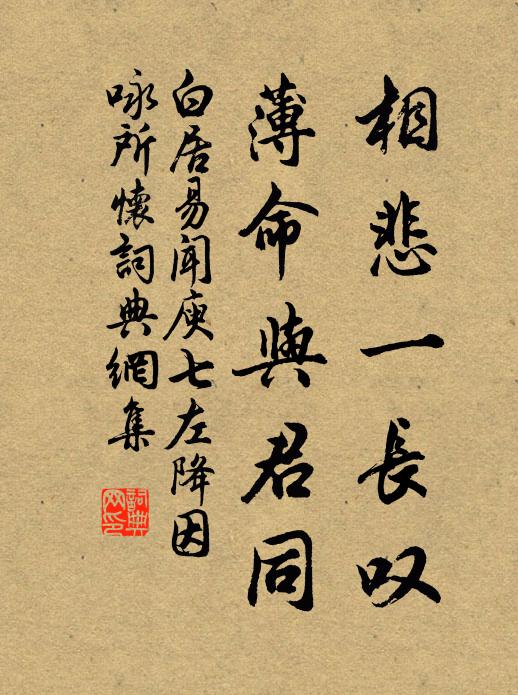 相悲一長叹
薄命與君同
白居易聞庾七左降因
咏所懷詞典網集
詞典網印